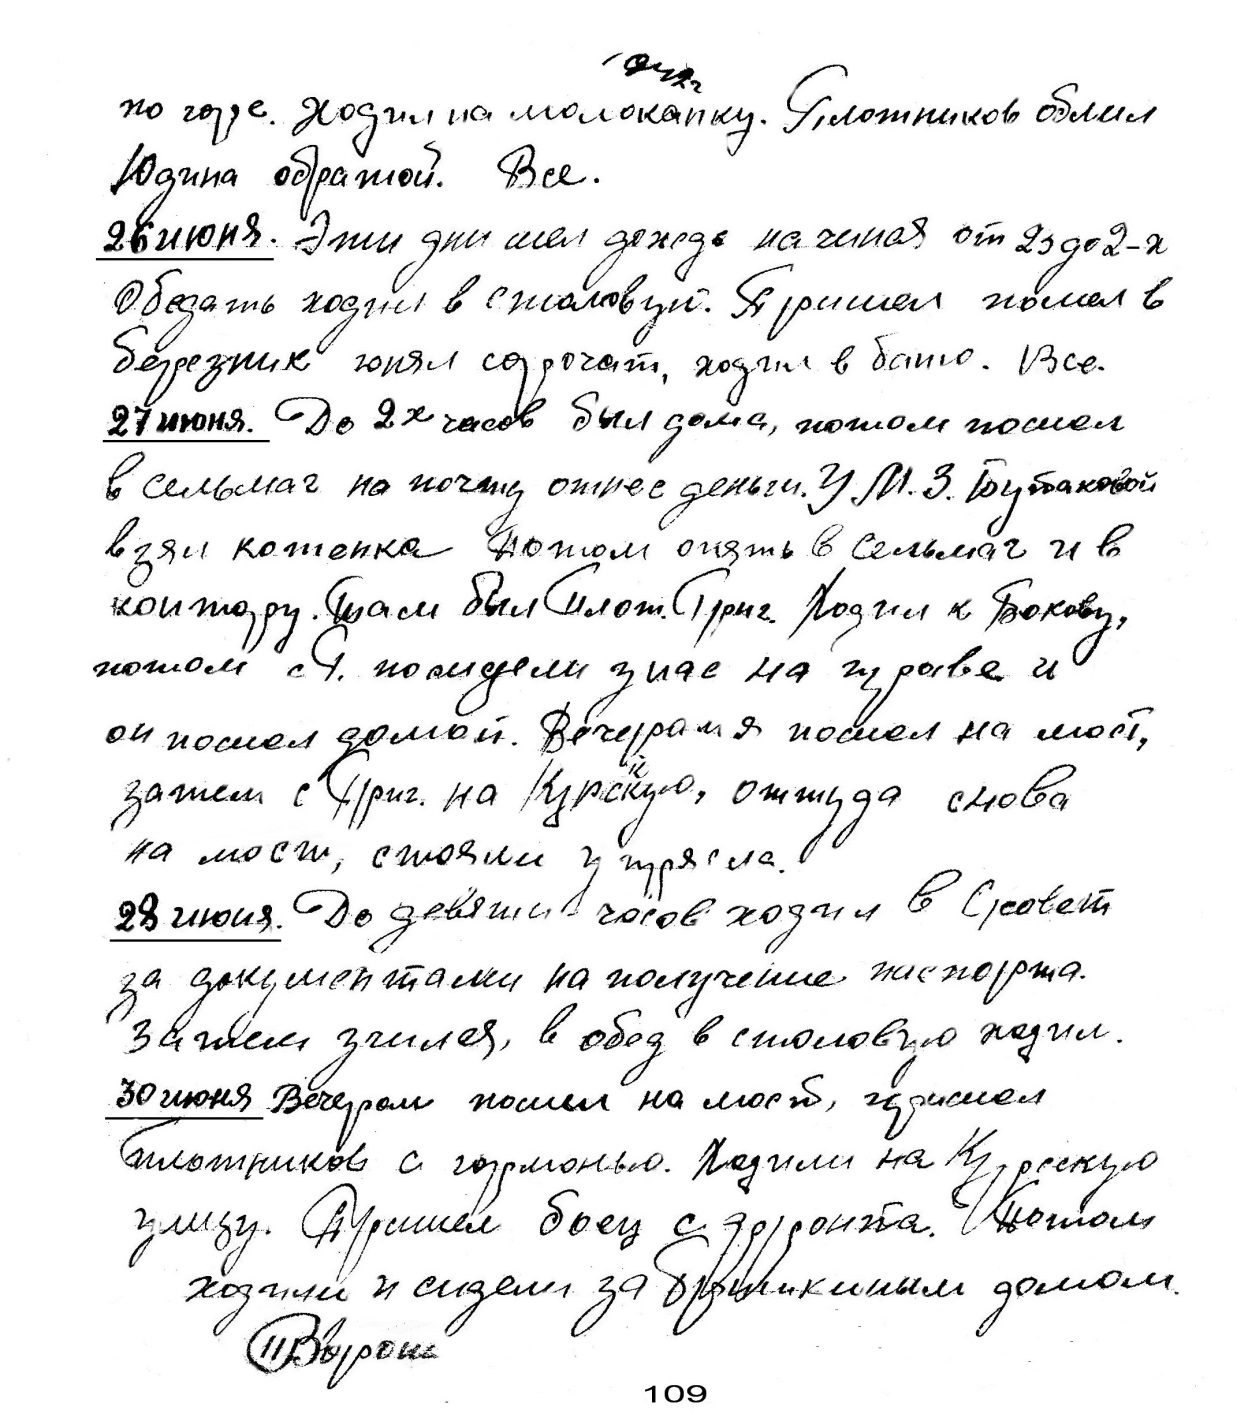 1942г
по горе. Ходил на молоканку. Плотников облил
Юдина обратой. Все.
26 июня. Эти дни шел дождь начиная от 23 до 2-х
Обедать ходил в столовую. Пришел пошел в
березник гонял сорочат, ходил в баню. Все.
27 июня. До 2х часов был дома, потом пошел
в сельмаг на почту отнес деньги. У М. З. Бутаковой
взял котенка Потом опять в сельмаг и в
контору. Там был Плот. Григ. Ходил к Бокову,
потом с П. посидели у нас на траве и
он пошел домой. Вечером я пошел на мост,
затем с Григ. на Курскую, оттуда снова
на мост, стояли у прясла.
28 июня. До девяти часов ходил в С/совет
за документами на получение паспорта.
Затем учился, в обед в столовую ходил.
30 июня Вечером пошел на мост, пришел
Плотников с гормонью. Ходили на Курскую
улицу. Пришел боец с фронта. Потом
ходили и сидели за домом.
109